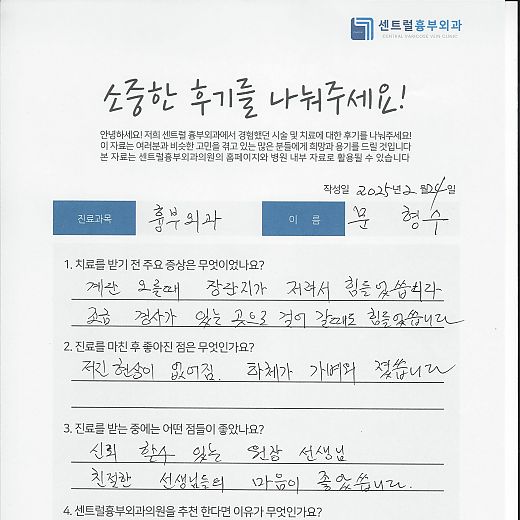 센트럴흉부외과
CENTRAL VARICOSE VEIN CLINIC
소중한 후기를 나눠주세요!
안녕하세요! 저희 센트럴 흉부외과에서 경험했던 시술 및 치료에 대한 후기를 나눠주세요!
이 자료는 여러분과 비슷한 고민을 겪고 있는 많은 분들에게 희망과 용기를 드릴 것입니다
본 자료는 센트럴흉부외과의원의 홈페이지와 병원 내부 자료로 활용될 수 있습니다
작성일 2025년 2 월 24 일
진료과목 흉부외과 이 름 문 형수
1. 치료를 받기 전 주요 증상은 무엇이었나요?
계단 오를때 장단지가 저려서 힘들었씁니다
조금 경사가 있는 곳으로 걸어 갈때도 힘들었씁니다
2. 진료를 마친 후 좋아진 점은 무엇인가요?
저린현상이 없어짐. 하체가 가벼워 졌씁니다
3. 진료를 받는 중에는 어떤 점들이 좋았나요?
신뢰 할수 있는 원장 선생님
친절한 선생님들의 마음이 좋았씁니다.
4. 센트럴흉부외과의원을 추천 한다면 이유가 무엇인가요?